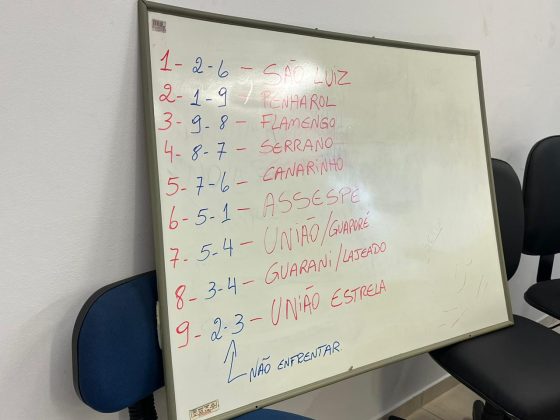 1- 2-6 - SÃO LUIZ
2- 1-9 - PENHAROL
3- 9-8 - FLAMENGO
4- 8-7 - SERRANO
5- 7-6 - CANARINHO
6- 5-1 - ASSESPE
7- 5-4 - UNIÃO/GUAPORÉ
8- 3-4 - GUARANI/LAJEADO
9- 2-3 - UNIÃO ESTRELA
NÃO ENFRENTAR.